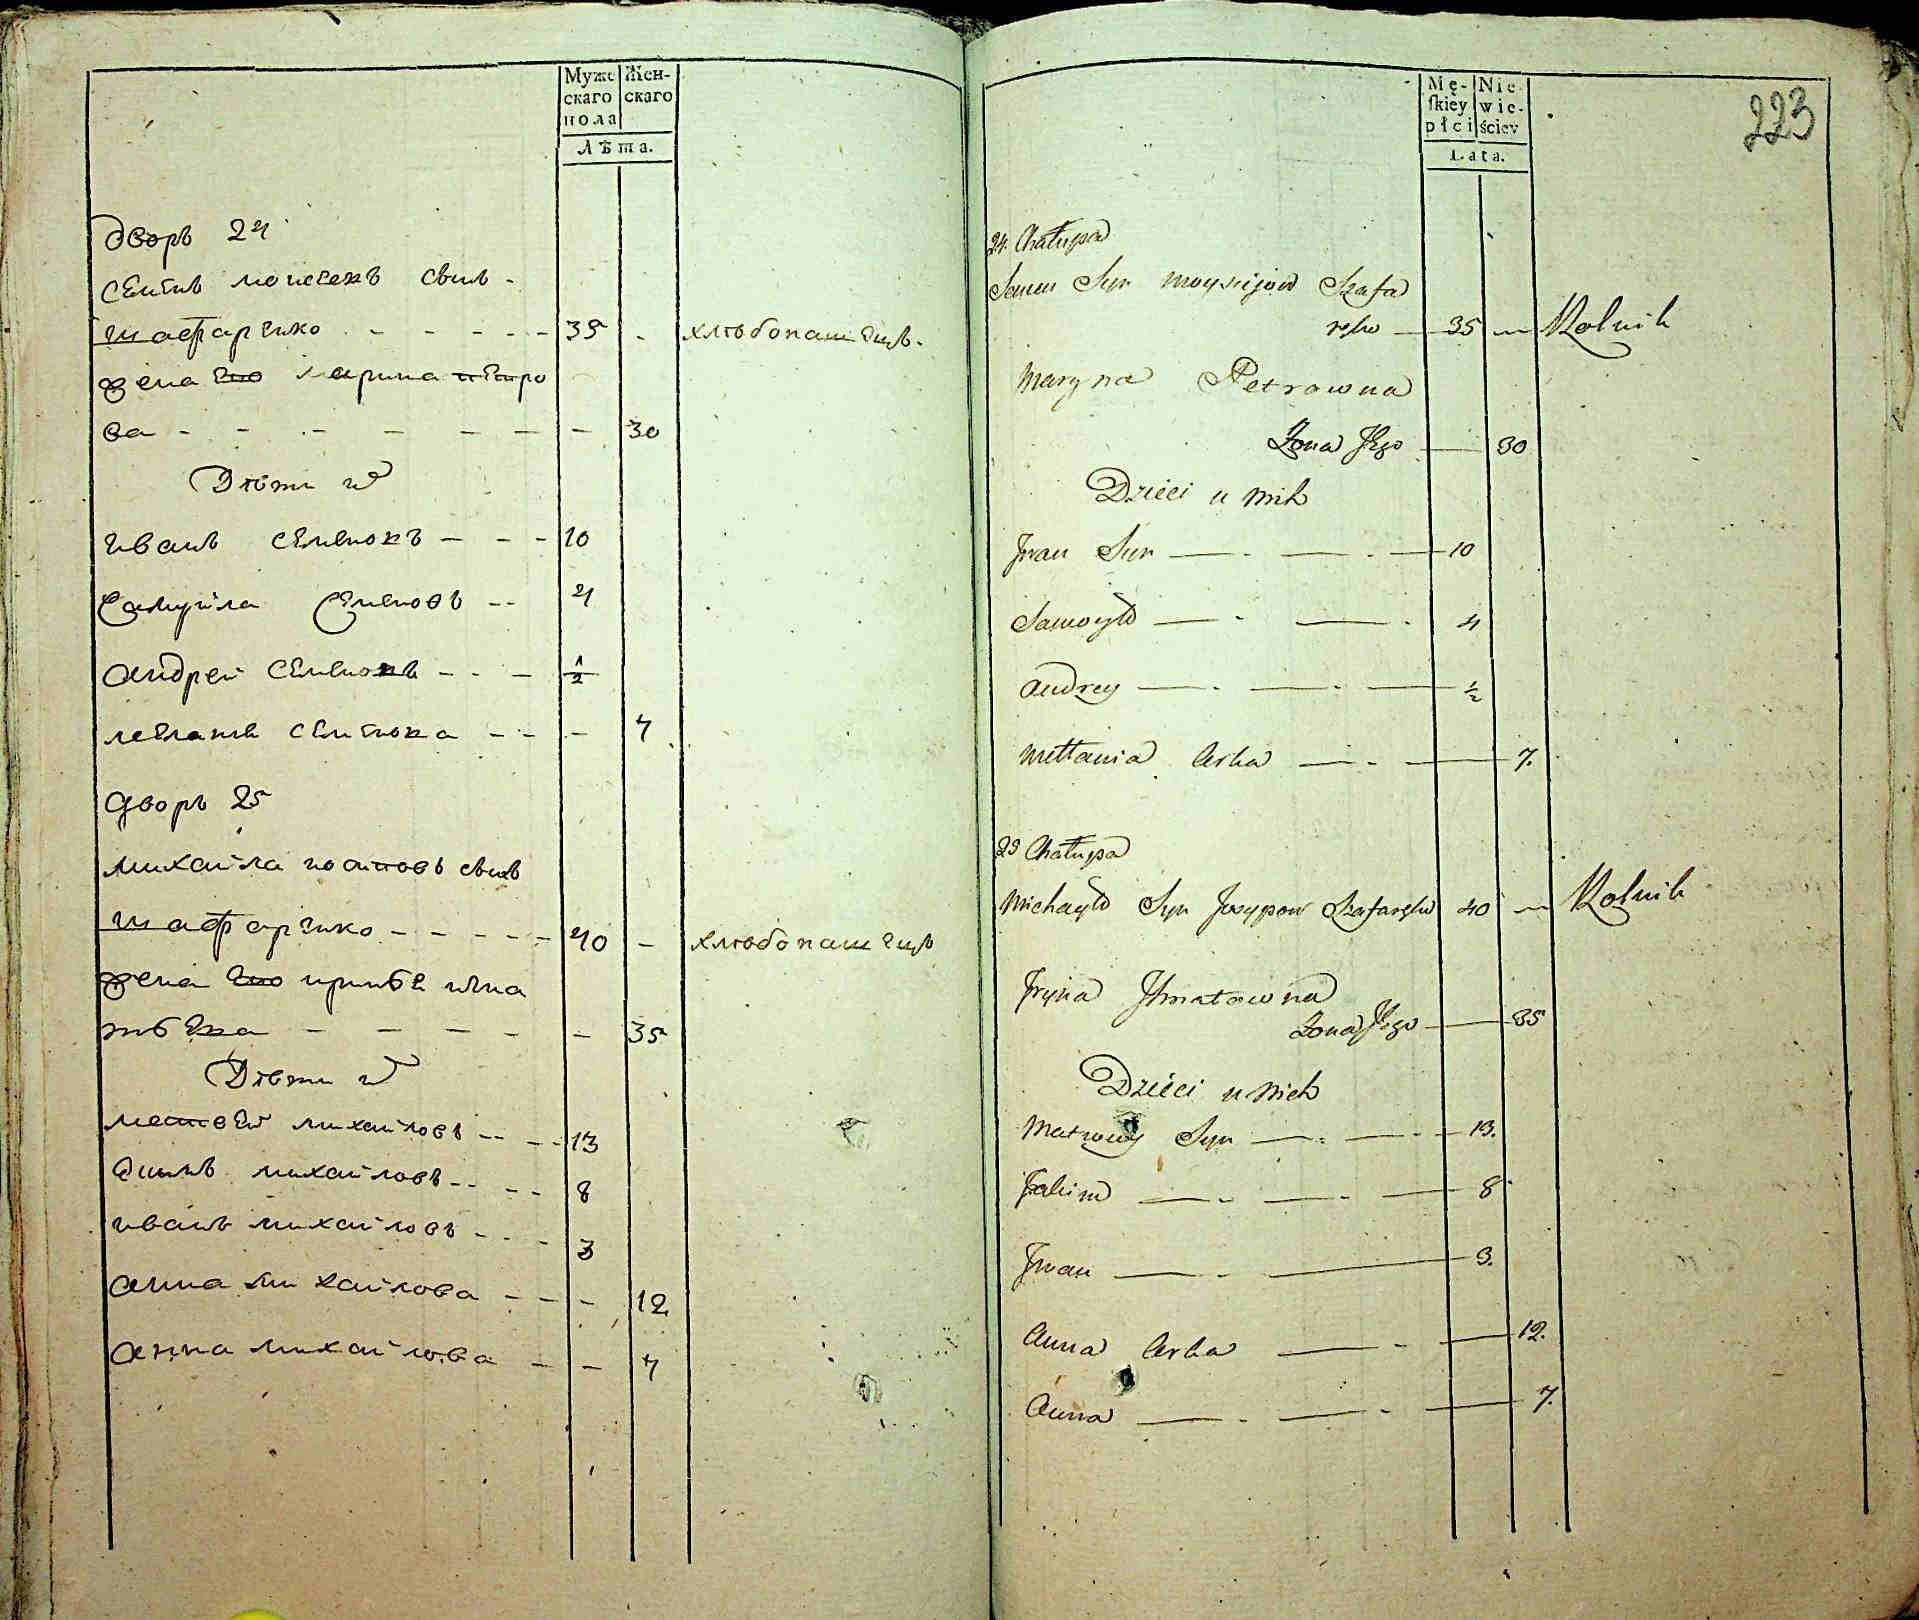 Муже
скаго
пола
Жен-
скаго
Лѣта.
Дворъ 24
Семенъ моисеевъ сынъ
шафаренко - - - - - 35 - хлѣбопашецъ.
жена его марина петро
ва - - - - - - - 30
Дѣти
иванъ семеновъ - - - 10
Самуйла Семеновъ - - 4
андрей семеновъ - - - 1/2
мелания семенова - - - 7
Дворъ 25
михайла иосиповъ сынъ
шафаренко - - - - - 40 - хлѣбопашецъ
жена его
- - - - - 35
Дѣти
матвей михайловъ - - - 13
михайловъ - - - 8
иванъ михайловъ - - - 3
анна михайлова - - - 12
анна михайлова - - 7
Mę-
skiey
płci
Nie
wie-
ściey
Lata.
223
24. Chałupa
Semen Syn Moysijow Szafa
reko — 35 — Rolnik
Maryna Petrowna
Zona Jego — 30
Dzieci u nich
Jwan Syn — - — - — 10
Samoyło — - — - 4
Andrey — - — - — 1/2
Mełłania Corka — - — 7.
25 Chałupa
Michayło Syn Josypow Szafareko 40 — Rolnik
Jryna Jhnatowna
Zona Jego — 35
Dzieci u nich
Matwiey Syn — - — - — 13.
Jakim — - — - — 8
Jwan — - — 3.
Anna Corka — - — 12.
Anna — - — - — 7.